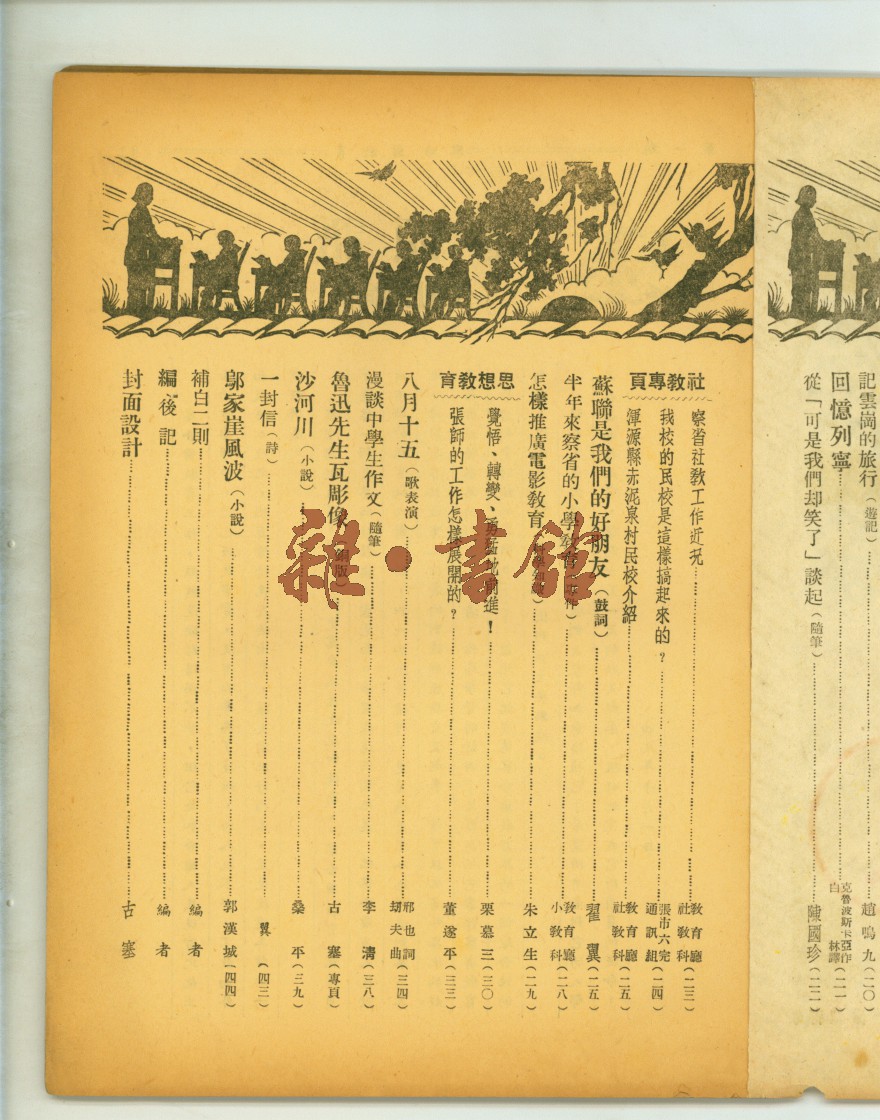 記雲崗的旅行(遊記)……趙鳴九(二〇)
回憶列寧……克魯波斯卡亞作 白林譯(二一)
從「可是我們却笑了」談起(隨筆)……陳國珍(二二)
社教專頁
察省社教工作近況……教育廳社教科(二三)
我校的民校是這樣搞起來的?……張市六完通訊組(二四)
渾源縣赤泥泉村民校介紹……教育廳社教科(二五)
蘇聯是我們的好朋友(鼓詞)……翟翼(二五)
半年來察省的小學教育……教育廳小教科(二八)
怎樣推廣電影教育……朱立生(二九)
思想教育
覺悟、轉變、勇猛地前進!……栗慕三(三〇)
張師的工作怎樣展開的?……董遂平(三三)
八月十五(歌表演)……祁也詞 刼夫曲(三四)
漫談中學生作文(隨筆)……李清(三八)
魯迅先生瓦彫像(銅版)……古塞(專頁)
沙河川(小說)……桑平(三九)
一封信(詩)……翼(四三)
鄔家崖風波(小說)……郭漢城(四四)
補白二則……編者
編後記……編者
封面設計……古塞
雜·書館